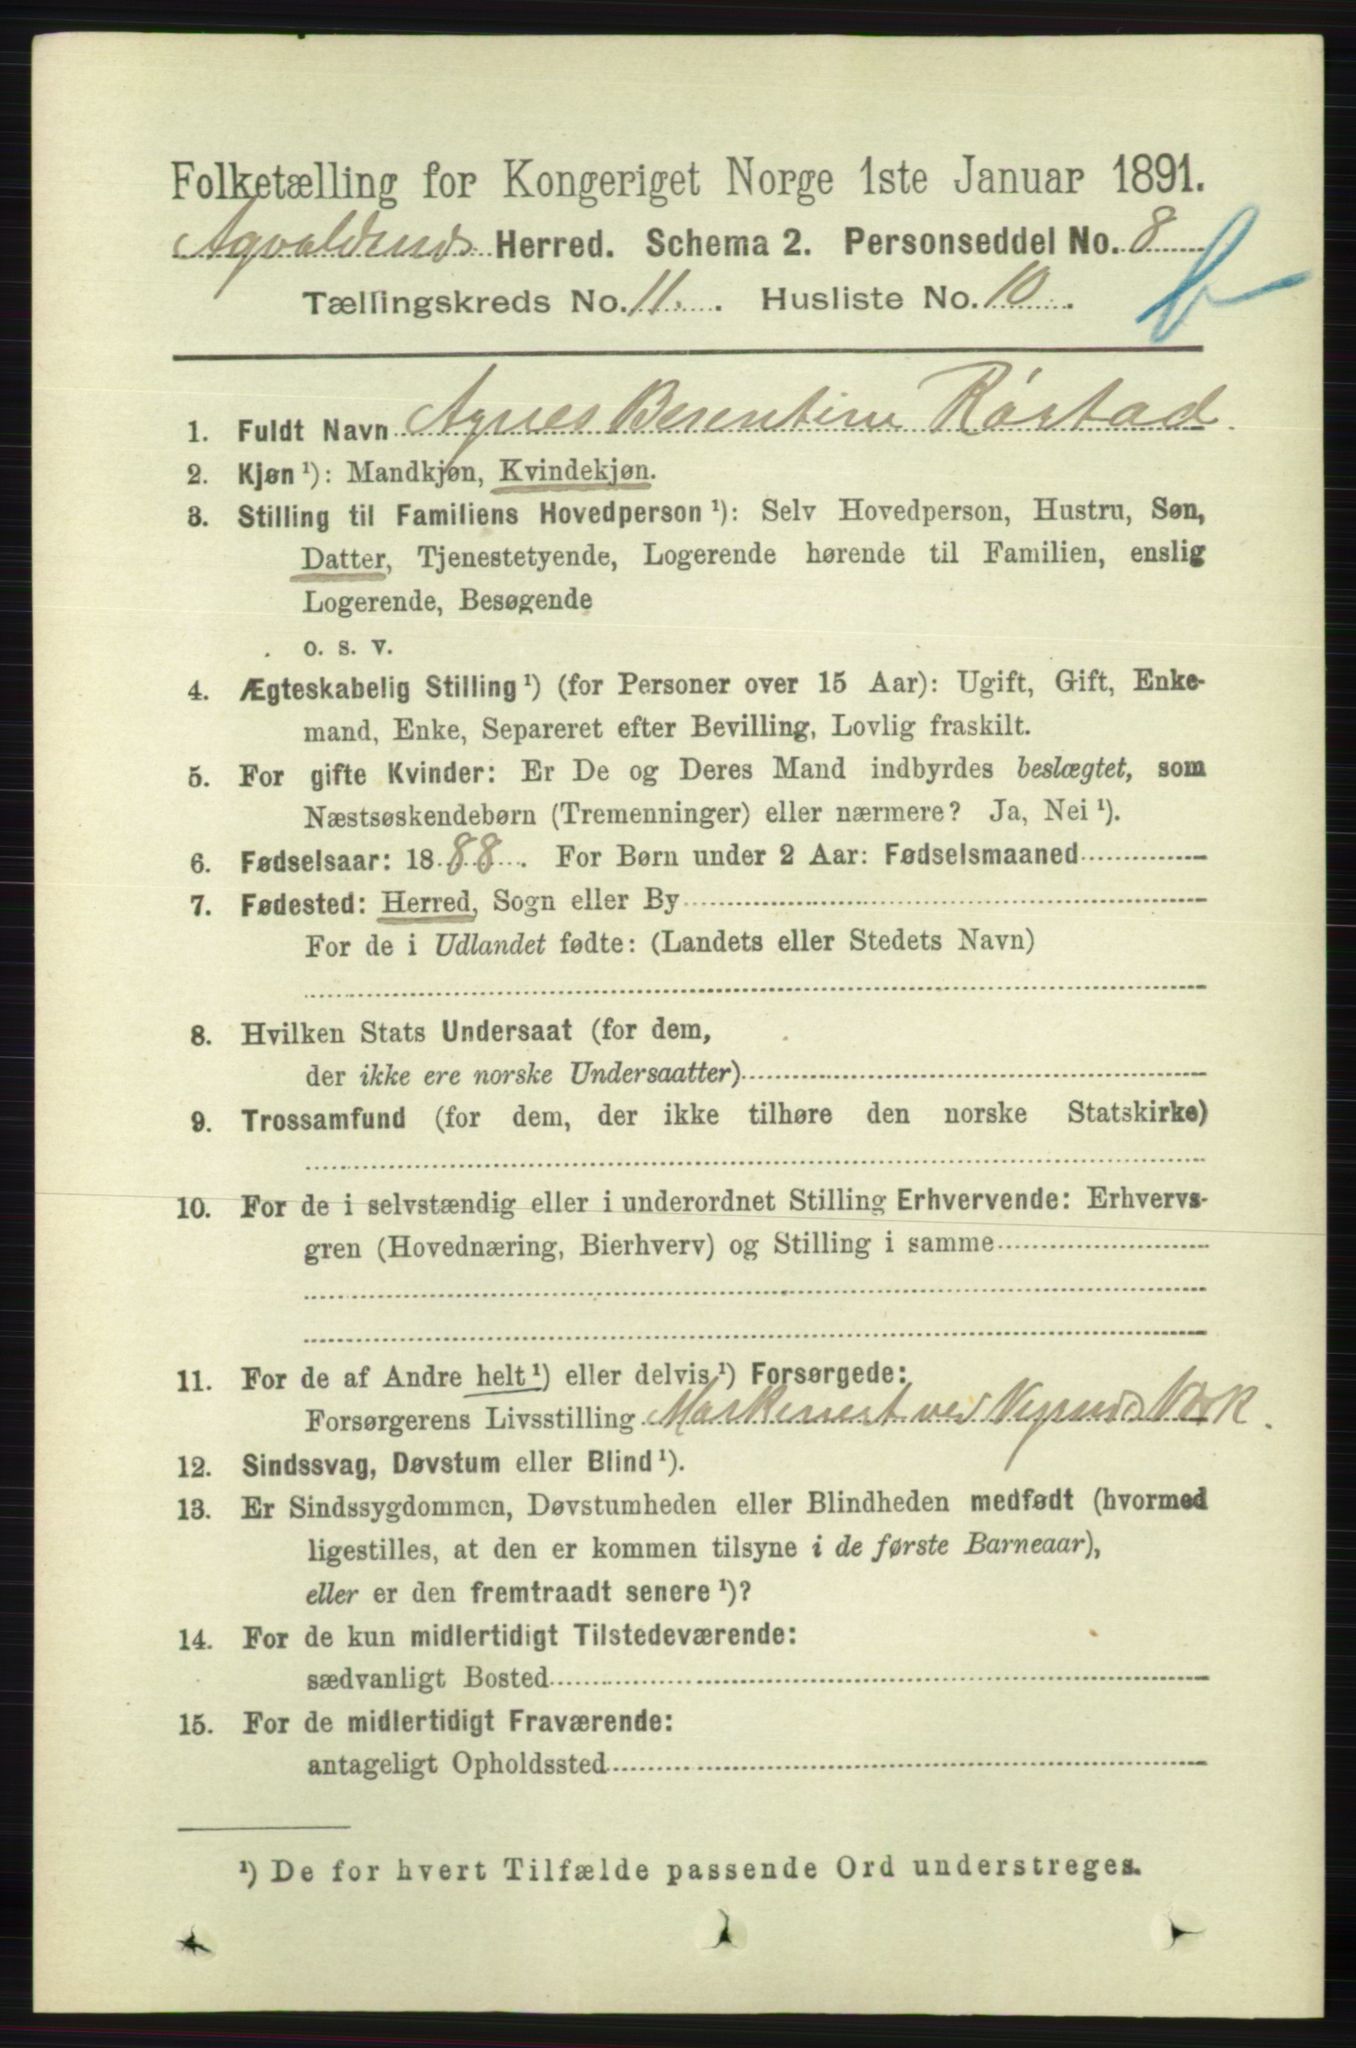 Folketælling for Kongeriget Norge 1ste Januar 1891.
Agvaldsnes Herred. Schema 2. Personseddel No. 8
Tællingskreds No. 11. Husliste No. 10.
1. Fuldt Navn Agnes Berentine Rørstad.
2. Kjøn ¹): Mandkjøn, Kvindekjøn.
3. Stilling til Familiens Hovedperson ¹): Selv Hovedperson, Hustru, Søn,
Datter, Tjenestetyende, Logerende hørende til Familien, enslig
Logerende, Besøgende
o. s. v.
4. Ægteskabelig Stilling ¹) (for Personer over 15 Aar): Ugift, Gift, Enke-
mand, Enke, Separeret efter Bevilling, Lovlig fraskilt.
5. For gifte Kvinder: Er De og Deres Mand indbyrdes beslægtet, som
Næstsøskendebørn (Tremenninger) eller nærmere? Ja, Nei ¹).
6. Fødselsaar: 1888. For Børn under 2 Aar: Fødselsmaaned
7. Fødested: Herred, Sogn eller By
For de i Udlandet fødte: (Landets eller Stedets Navn)
8. Hvilken Stats Undersaat (for dem,
der ikke ere norske Undersaatter)
9. Trossamfund (for dem, der ikke tilhøre den norske Statskirke)
10. For de i selvstændig eller i underordnet Stilling Erhvervende: Erhvervs-
gren (Hovednæring, Bierhverv) og Stilling i samme
11. For de af Andre helt ¹) eller delvis ¹) Forsørgede:
Forsørgerens Livsstilling ved
12. Sindssvag, Døvstum eller Blind ¹).
13. Er Sindssygdommen, Døvstumheden eller Blindheden medfødt (hvormed
ligestilles, at den er kommen tilsyne i de første Barneaar),
eller er den fremtraadt senere ¹)?
14. For de kun midlertidigt Tilstedeværende:
sædvanligt Bosted
15. For de midlertidigt Fraværende:
antageligt Opholdssted
¹) De for hvert Tilfælde passende Ord understreges.